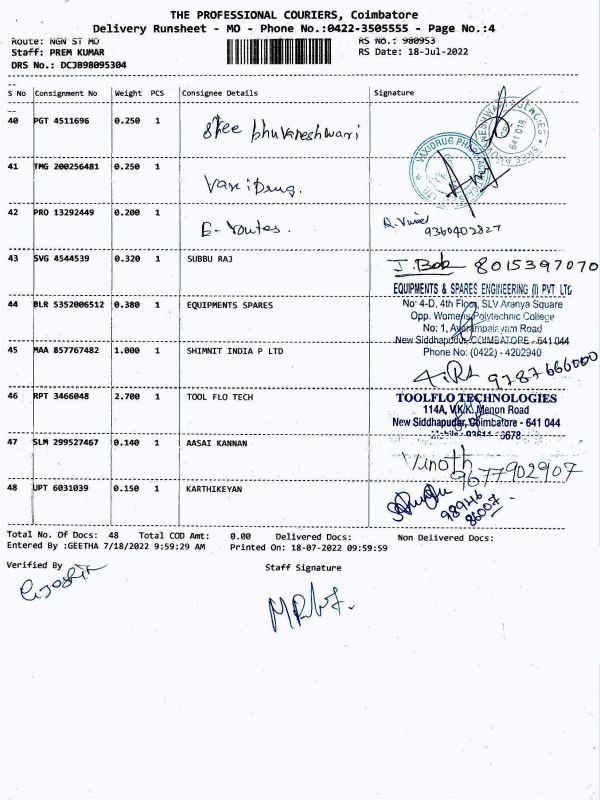 THE PROFESSIONAL COURIERS, Coimbatore
Delivery Runsheet - MO - Phone No.:0422-3505555 - Page No.:4
Route: NGN ST MO
RS No.: 980953
Staff: PREM KUMAR
RS Date: 18-Jul-2022
DRS No.: DCJB98095304
S No Consignment No Weight PCS Consignee Details Signature
40 PGT 4511696 0.250 1 Shree bhuvaneshwari
41 TMG 200256481 0.250 1 Vaxidrug.
42 PRO 13292449 0.200 1 E-Routes. 9360402827
43 SVG 4544539 0.320 1 SUBBU RAJ J.Bob 8015397070
EQUIPMENTS & SPARES ENGINEERING (I) PVT LTD
44 BLR 5352006512 0.380 1 EQUIPMENTS SPARES No: 4-D, 4th Floor, SLV Aranya Square
Opp. Womens Polytechnic College
No: 1, Avarampalayam Road
New Siddhapudur, COIMBATORE - 641 044
45 MAA 857767482 1.000 1 SHIMNIT INDIA P LTD Phone No: (0422) - 4202940
9787666000
46 RPT 3466048 2.700 1 TOOL FLO TECH TOOLFLO TECHNOLOGIES
114A, V.K.K. Menon Road
New Siddhapudur, Coimbatore - 641 044
47 SLM 299527467 0.140 1 AASAI KANNAN Vinoth 9677902907
48 UPT 6031039 0.150 1 KARTHIKEYAN 98946 86007
Total No. Of Docs: 48 Total COD Amt: 0.00 Delivered Docs: Non Delivered Docs:
Entered By :GEETHA 7/18/2022 9:59:29 AM Printed On: 18-07-2022 09:59:59
Verified By Staff Signature